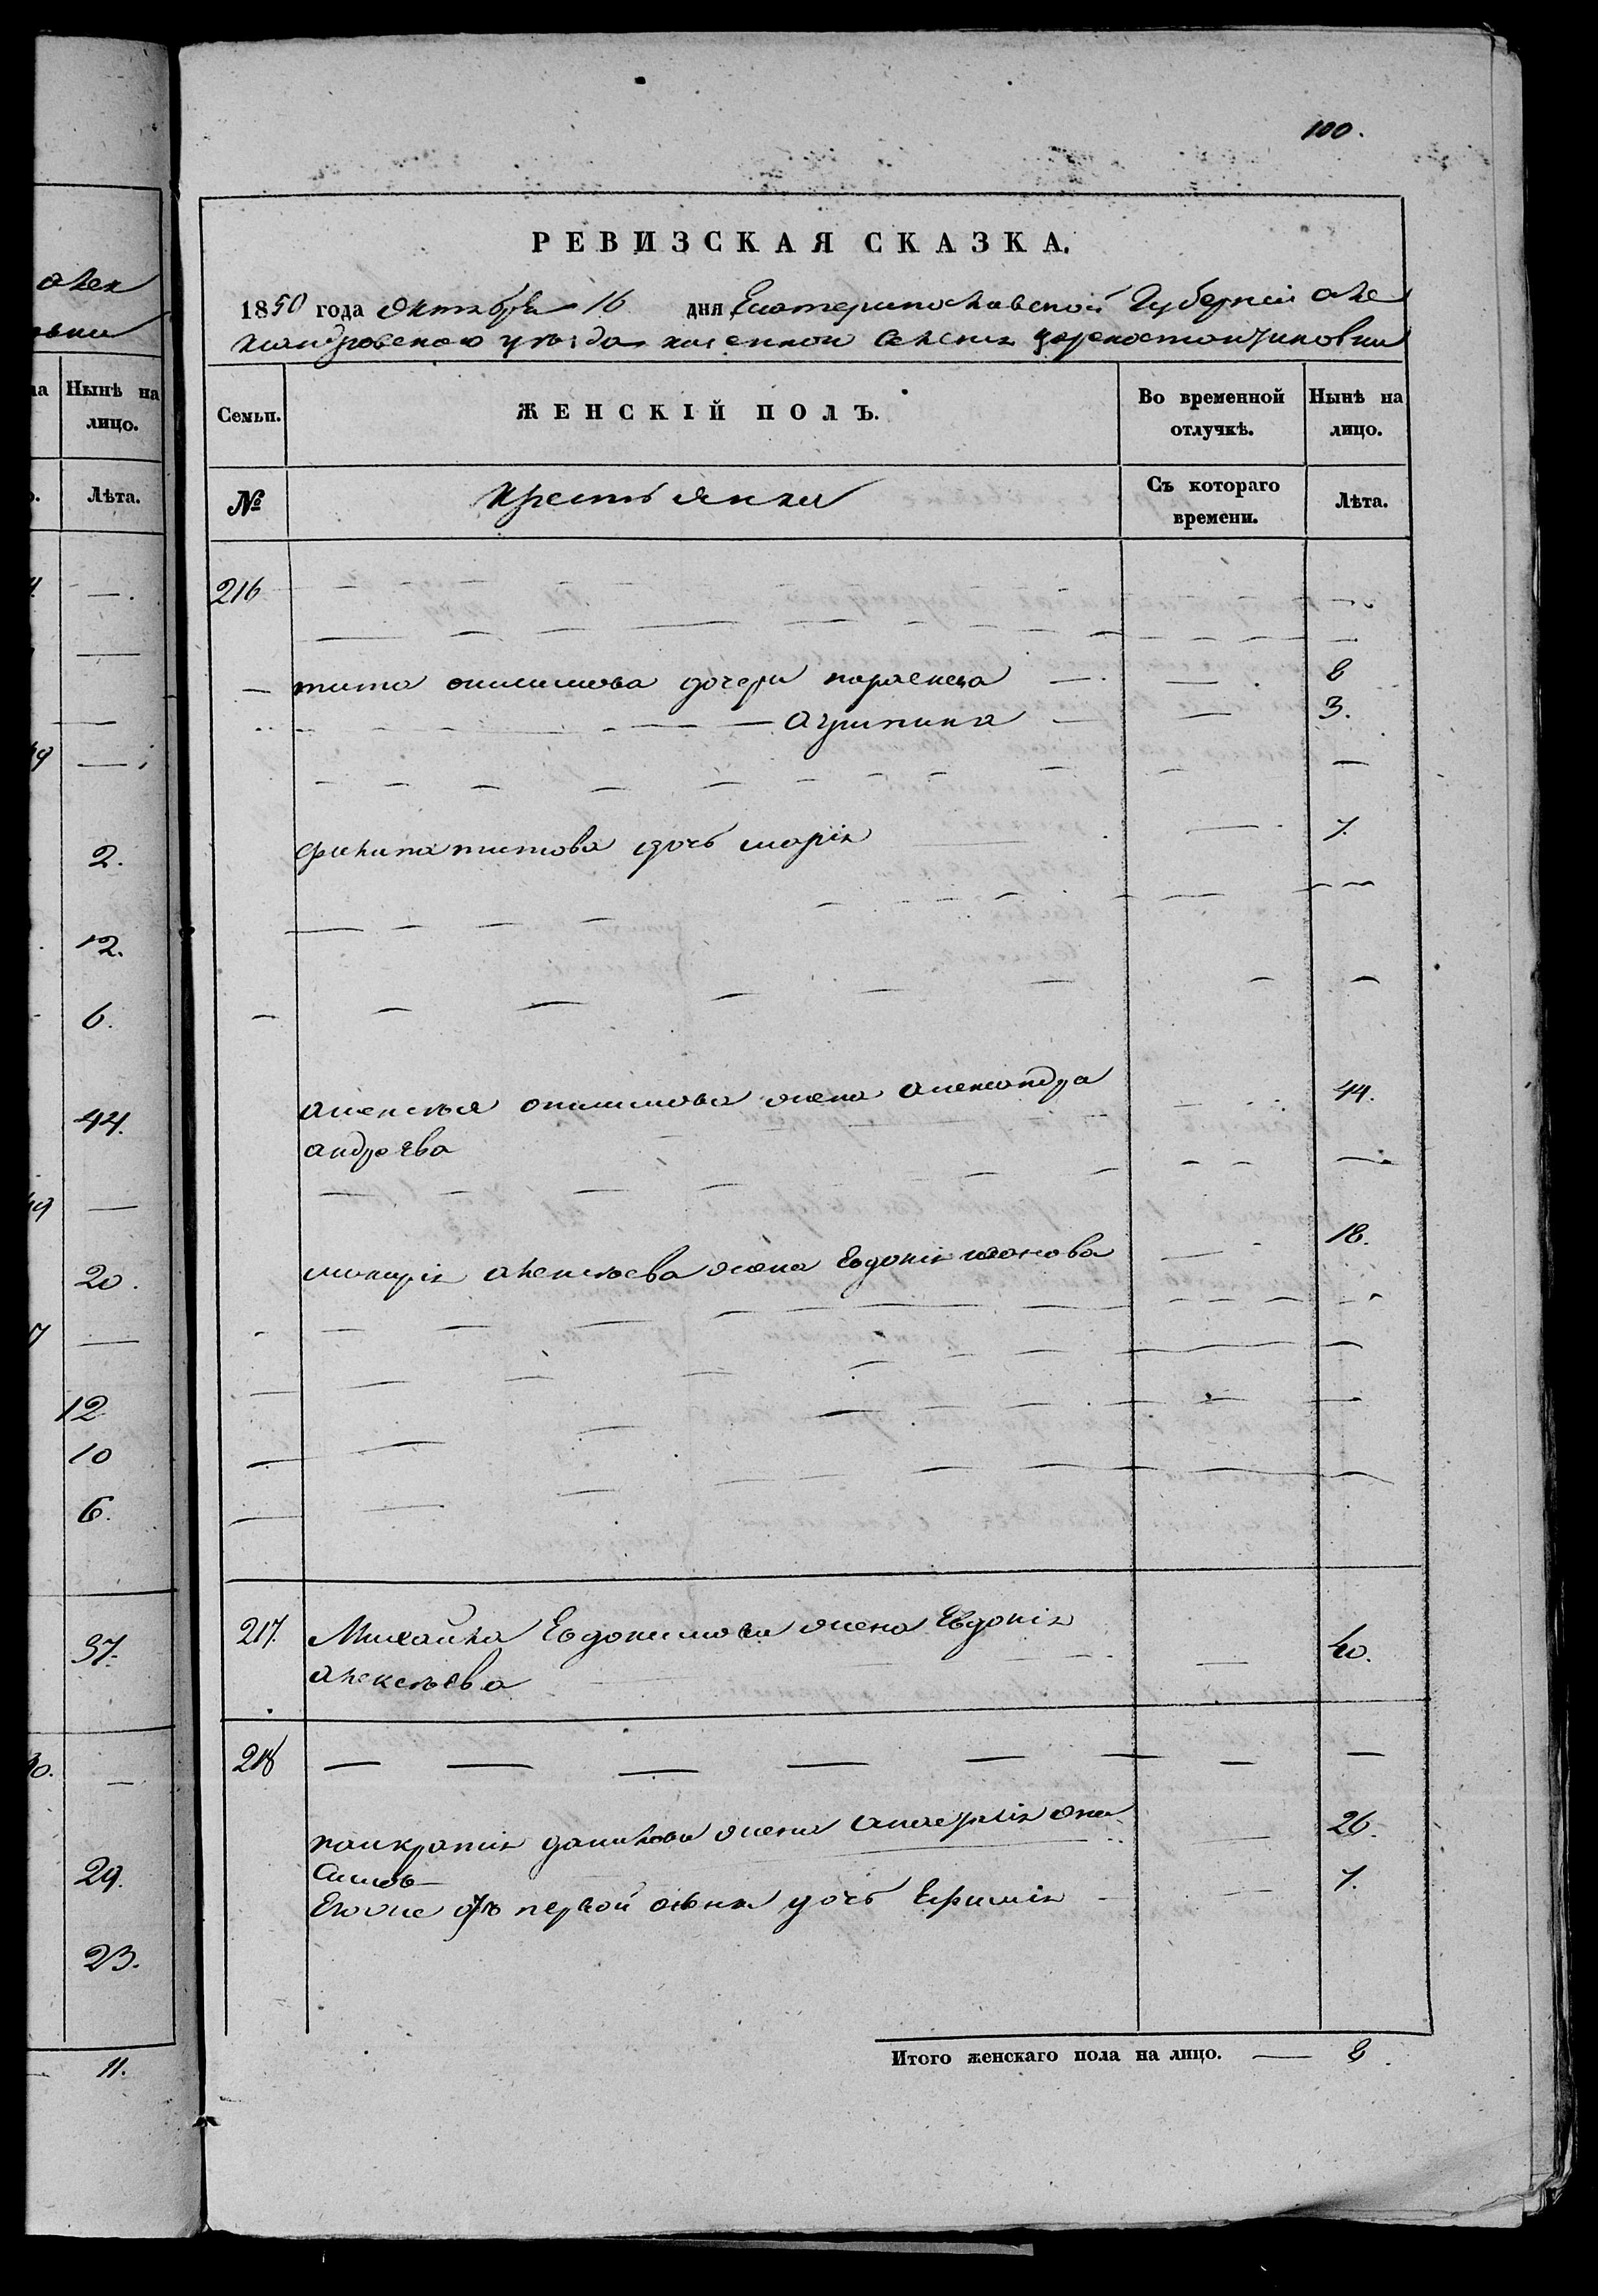 100.
РЕВИЗСКАЯ СКАЗКА.
1850 года октября 16 дня Екатеринославской Губернии Алек
сандровского уезда казенной селения Цареконстантиновки
Семьи. ЖЕНСКІЙ ПОЛЪ. Во временной отлучкѣ. Нынѣ на лицо.
№ Крестьянка Съ котораго времени. Лѣта.
216
— тита онисимова дочери параскева — 8
агрипина — 3.
филипа титова дочь марія — 7.
алексея онисимова жена александра — 44.
андреева
алексеева жена Евдокія — 18.
217. Михайла Евдокимова жена Евдокія
алексеева — 40.
218 — — — — —
панкратія данилова жена 26.
Его же отъ первой жены дочь Ефимія — 7.
Итого женскаго пола на лицо. — 8.
алек
вки
на Нынѣ на
лицо.
Лѣта.
2.
12.
6.
44.
49 —
20.
7 —
12
10
6.
37.
30. —
29.
23.
11.